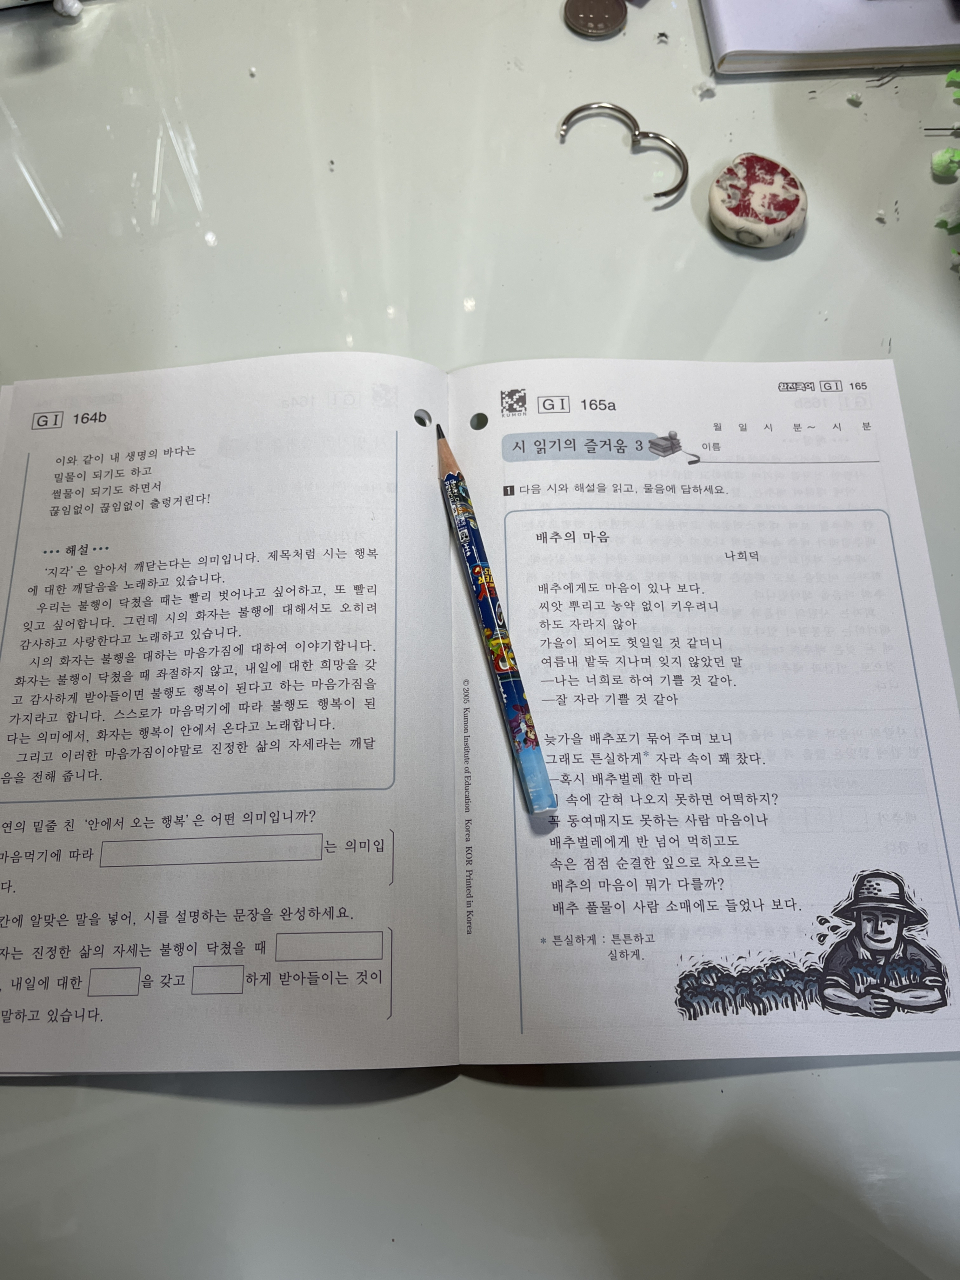 GⅠ 164b
이와 같이 내 생명의 바다는
밀물이 되기도 하고
썰물이 되기도 하면서
끊임없이 끊임없이 출렁거린다!
••• 해설 •••
‘지각’은 알아서 깨닫는다는 의미입니다. 제목처럼 시는 행복
에 대한 깨달음을 노래하고 있습니다.
우리는 불행이 닥쳤을 때는 빨리 벗어나고 싶어하고, 또 빨리
잊고 싶어합니다. 그런데 시의 화자는 불행에 대해서도 오히려
감사하고 사랑한다고 노래하고 있습니다.
시의 화자는 불행을 대하는 마음가짐에 대하여 이야기합니다.
화자는 불행이 닥쳤을 때 좌절하지 않고, 내일에 대한 희망을 갖
고 감사하게 받아들이면 불행도 행복이 된다고 하는 마음가짐을
가지라고 합니다. 스스로가 마음먹기에 따라 불행도 행복이 된
다는 의미에서, 화자는 행복이 안에서 온다고 노래합니다.
그리고 이러한 마음가짐이야말로 진정한 삶의 자세라는 깨달
음을 전해 줍니다.
연의 밑줄 친 ‘안에서 오는 행복’은 어떤 의미입니까?
마음먹기에 따라 는 의미입
다.
칸에 알맞은 말을 넣어, 시를 설명하는 문장을 완성하세요.
자는 진정한 삶의 자세는 불행이 닥쳤을 때
, 내일에 대한 을 갖고 하게 받아들이는 것이
말하고 있습니다.
© 2005 Kumon Institute of Education Korea KOR Printed in Korea
완전국어 GⅠ 165
KUMON
GⅠ 165a
월 일 시 분~ 시 분
시 읽기의 즐거움 3
이름
1 다음 시와 해설을 읽고, 물음에 답하세요.
배추의 마음
나희덕
배추에게도 마음이 있나 보다.
씨앗 뿌리고 농약 없이 키우려니
하도 자라지 않아
가을이 되어도 헛일일 것 같더니
여름내 밭둑 지나며 잊지 않았던 말
—나는 너희로 하여 기쁠 것 같아.
—잘 자라 기쁠 것 같아
늦가을 배추포기 묶어 주며 보니
그래도 튼실하게* 자라 속이 꽤 찼다.
—혹시 배추벌레 한 마리
속에 갇혀 나오지 못하면 어떡하지?
꼭 동여매지도 못하는 사람 마음이나
배추벌레에게 반 넘어 먹히고도
속은 점점 순결한 잎으로 차오르는
배추의 마음이 뭐가 다를까?
배추 풀물이 사람 소매에도 들었나 보다.
* 튼실하게 : 튼튼하고
실하게.